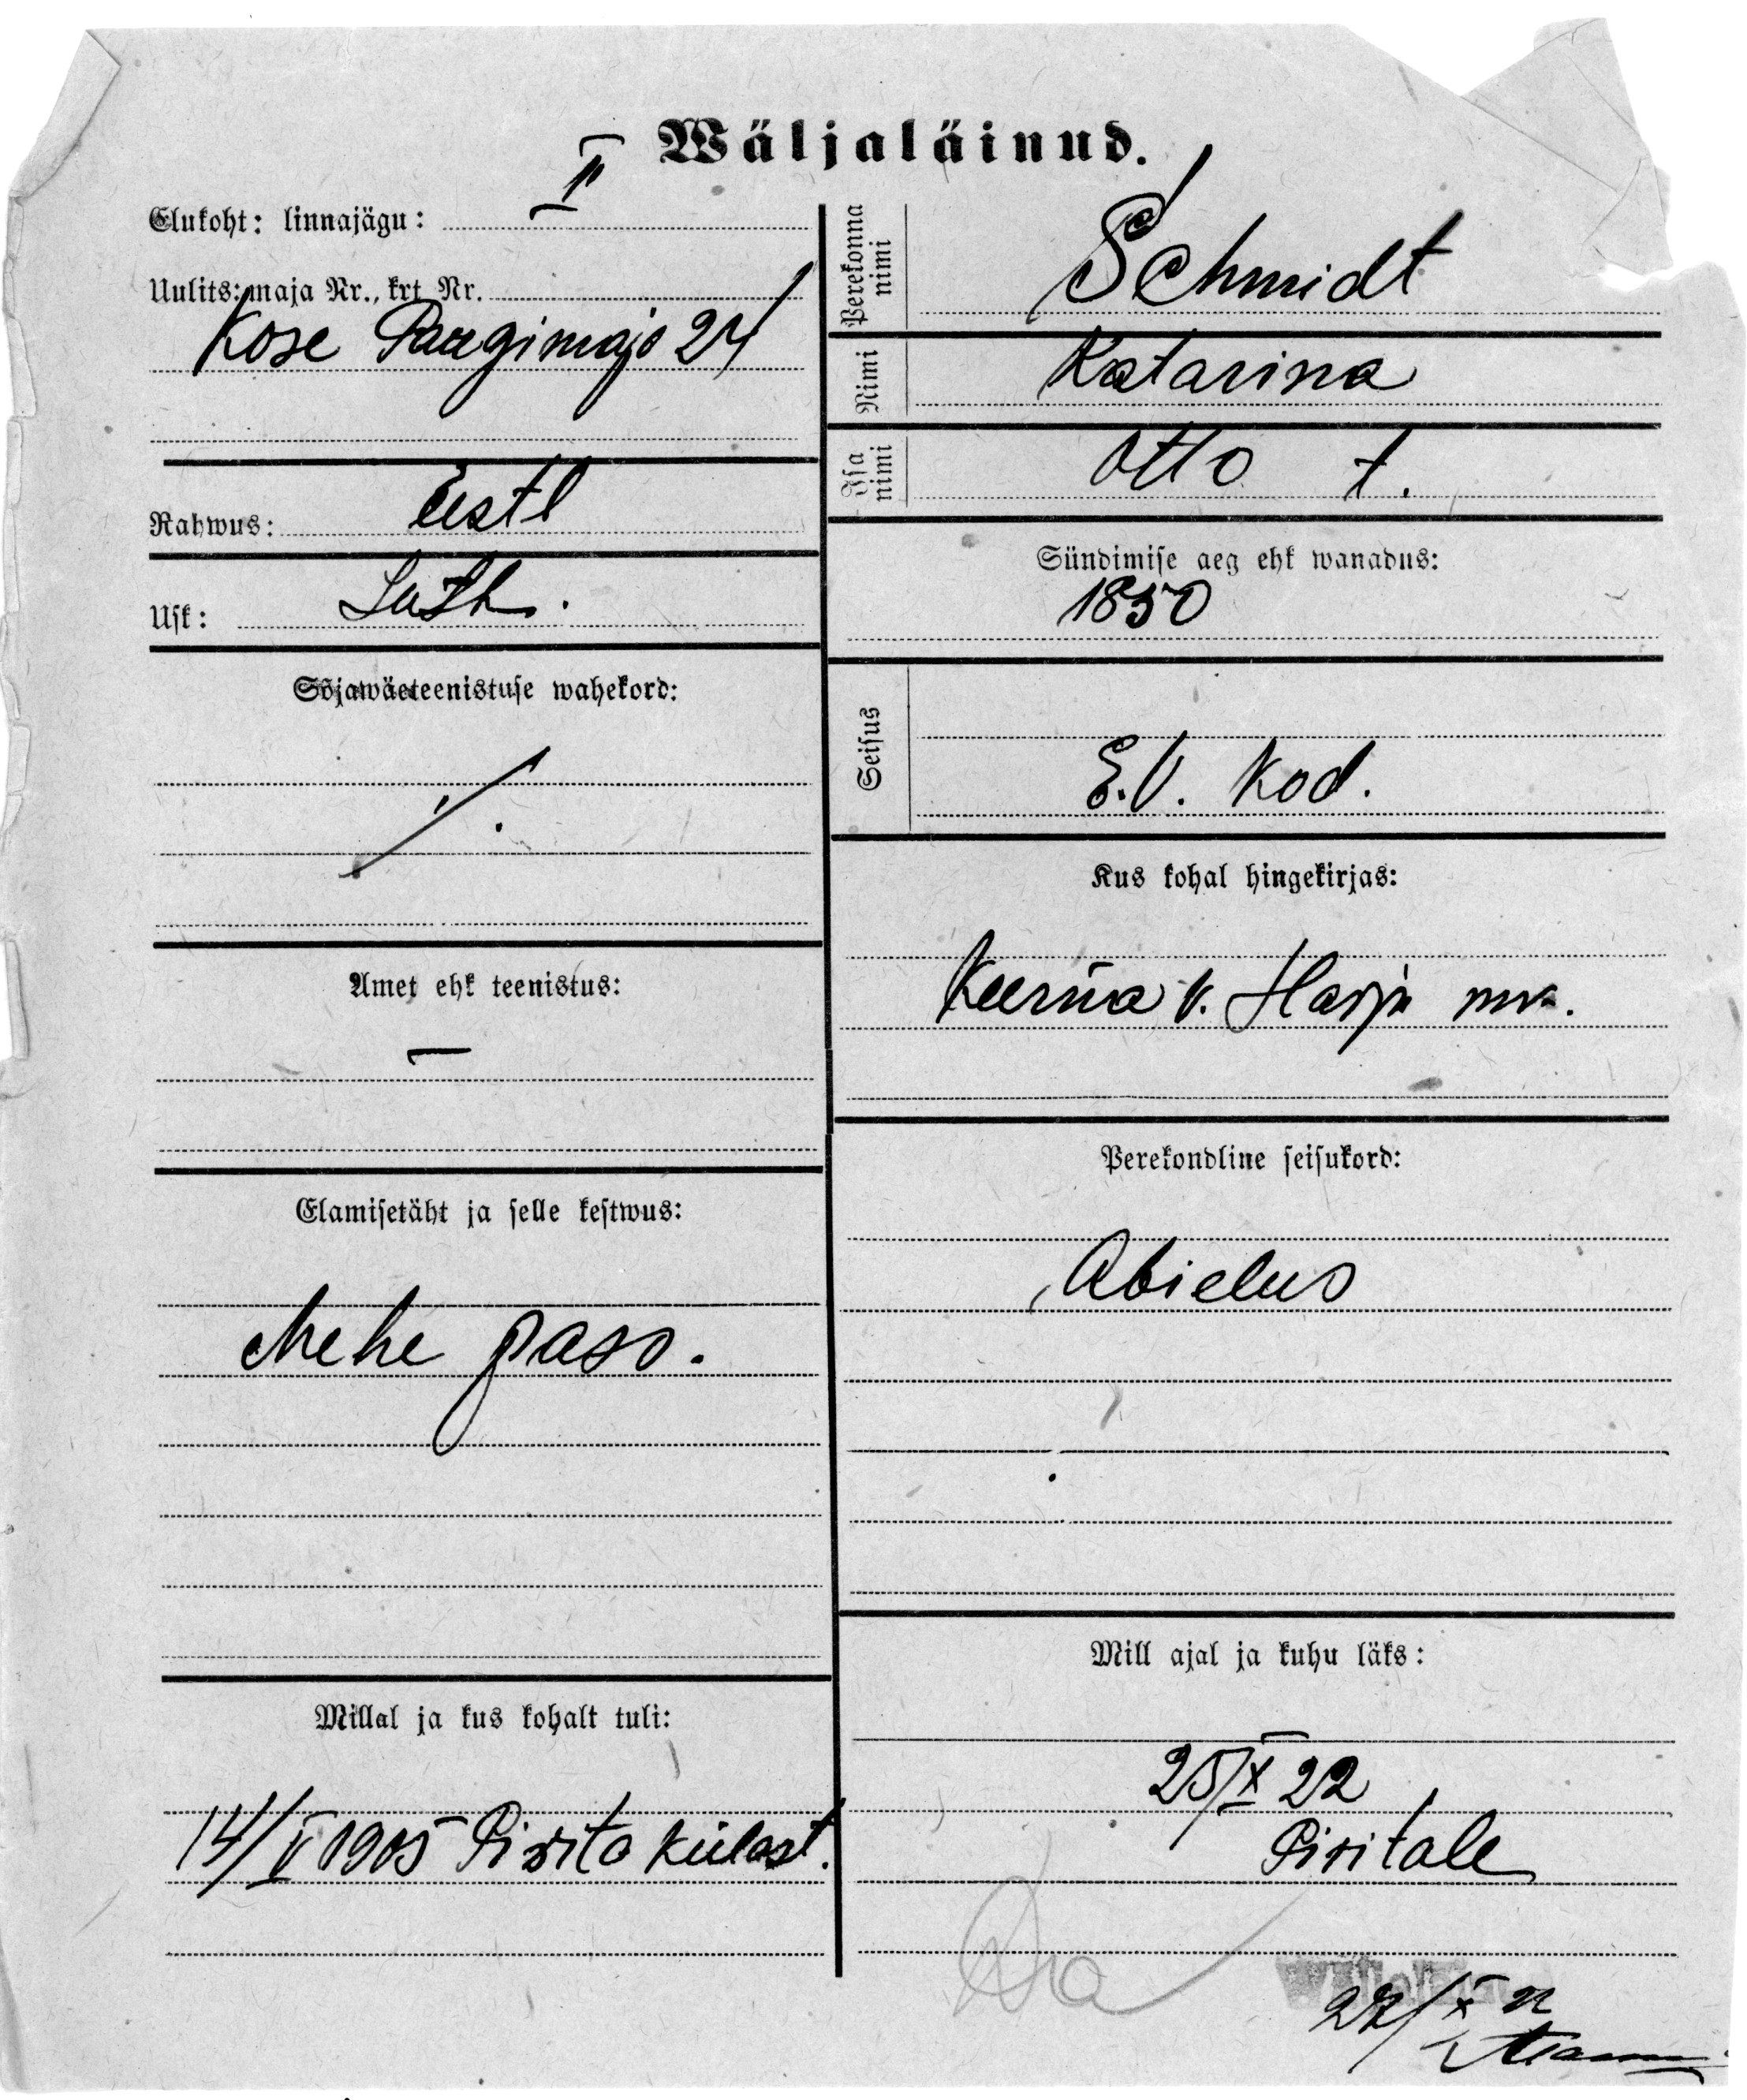 Wäljaläinud.
Elukoht: linnajägu: II
Uulits: maja Nr., krt Nr.
Kose Pargimaja 24
Rahwus: Eestl
Usk: Luth.
Sõjawäeteenistuse wahekord:
Amet ehk teenistus:
—
Elamisetäht ja selle kestwus:
Mehe pass.
Millal ja kus kohalt tuli:
14/V 1905 Pirita külast.
Perekonna nimi Schmidt
Nimi Katarina
Isa nimi Otto t.
Sündimise aeg ehk wanadus:
1850
Seisus
E.V. Kod.
Kus kohal hingekirjas:
v. Harju mk.
Perekondline seisukord:
Abielus
Mill ajal ja kuhu läks:
25/X 22
Piritale
27/X 22